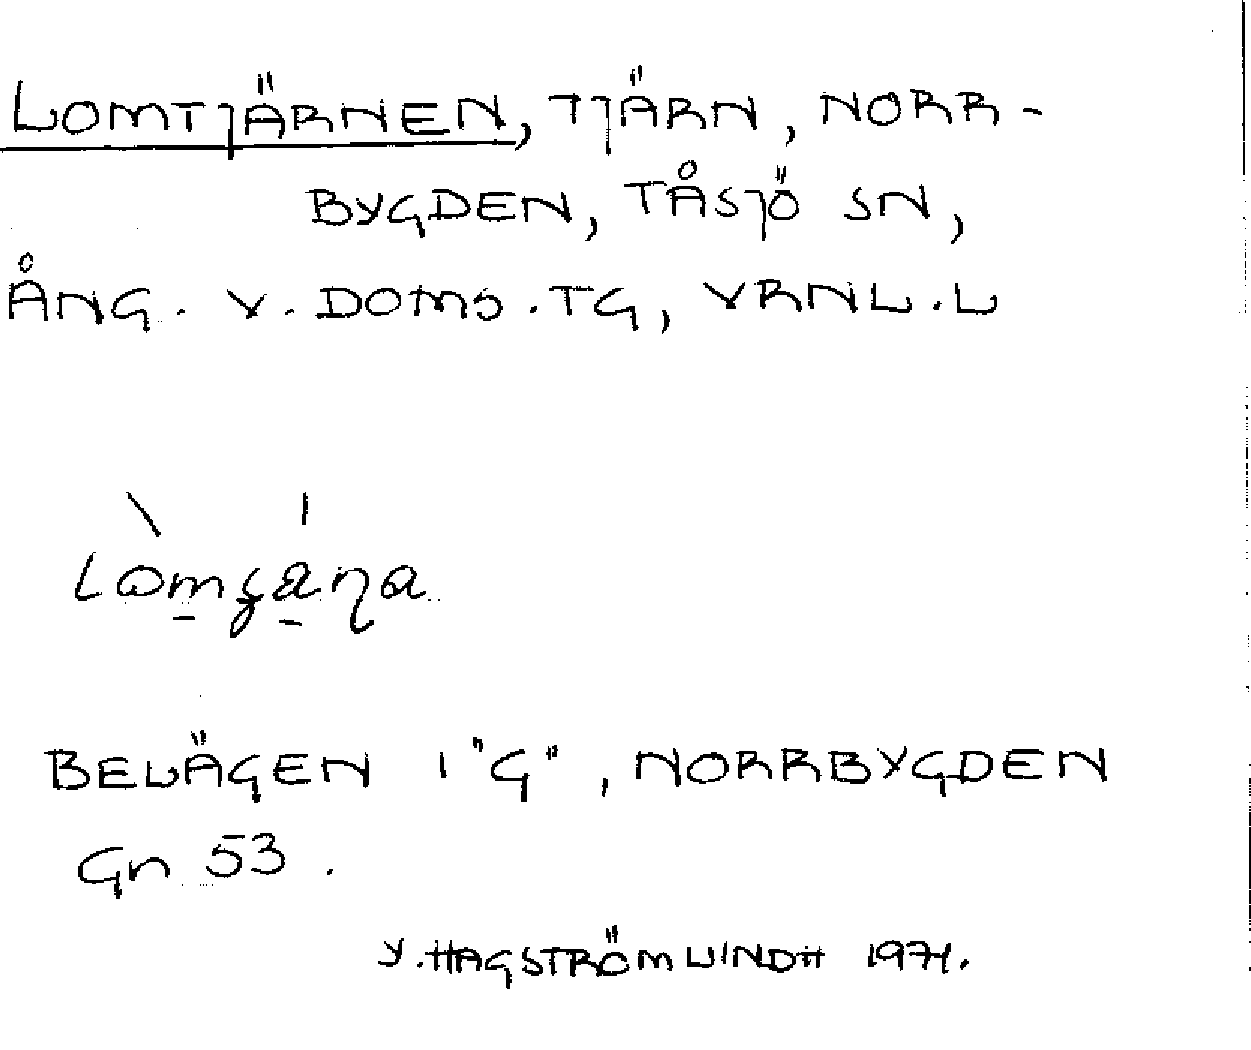 LOMTJÄRNEN, TJÄRN, NORR-
BYGDEN, TÅSJÖ SN,
ÅNG. V. DOMS.TG, VRNL.L
BELÄGEN I "G", NORRBYGDEN
Gn 53.
Y. HAGSTRÖM LINDH 1971.